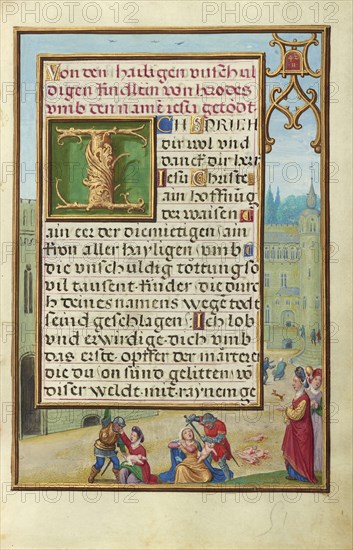 Von den hailigen vnschul
digen kindlein von herodes
vmb den namen iesu getödt.
ICH SPRICH
dir lob vnd
danck dir her
Iesu Christe
ain hoffnūg
der waisen
ain eer der diemietigen ain
kron aller hayligen vmb
die vnschuldig tottung so
vil tausent kinder die durch
deines namens wege todt
seind geschlagen Ich lob
vnd erwirdige dich vmb
das erste opffer der märtere
die du on sünd gelitten vō
diser weldt mit raynem ge